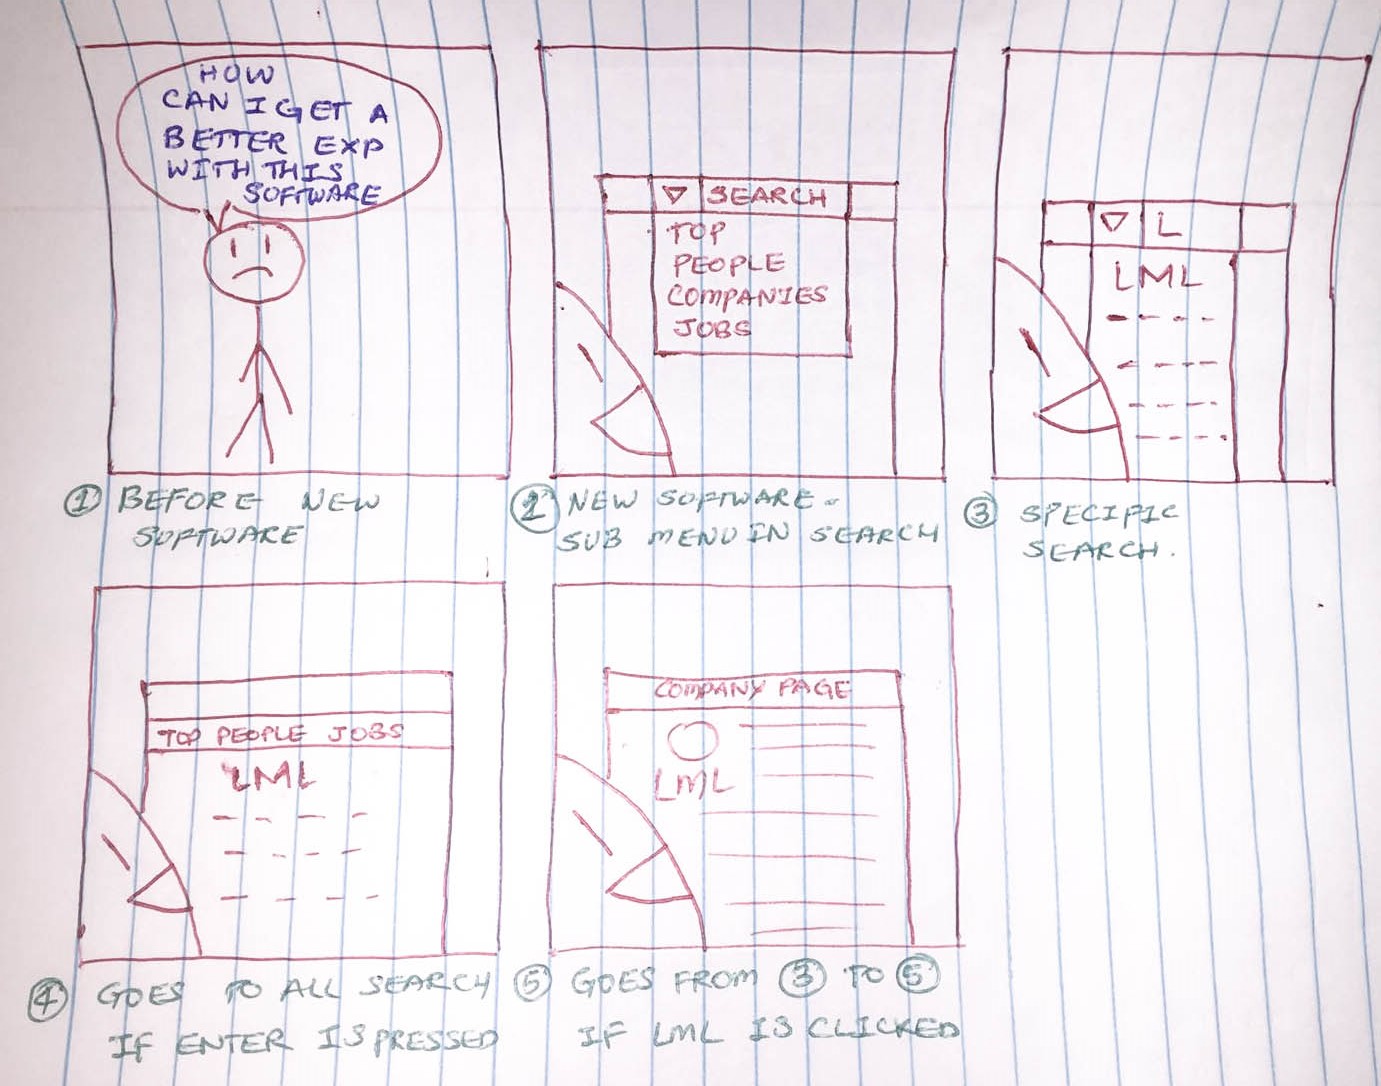 HOW
CAN I GET A
BETTER EXP
WITH THIS
SOFTWARE
① BEFORE NEW
SOFTWARE
SEARCH
TOP
PEOPLE
COMPANIES
JOBS
② NEW SOFTWARE -
SUB MENU IN SEARCH
L
LML
③ SPECIFIC
SEARCH.
TOP PEOPLE JOBS
LML
④ GOES TO ALL SEARCH
IF ENTER IS PRESSED
COMPANY PAGE
LML
⑤ GOES FROM ③ TO ⑤
IF LML IS CLICKED